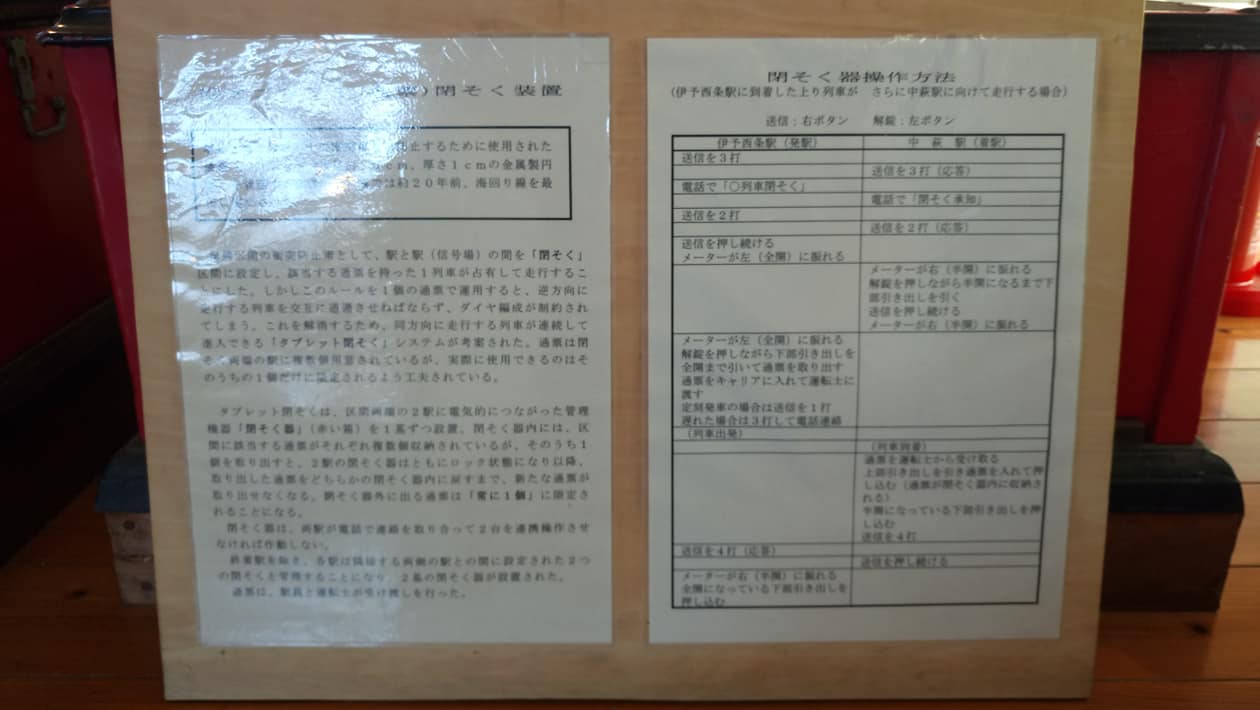 閉そく装置
止するために使用された
cm、厚さ１cmの金属製円
は約２０年前、海回り線を最
単線区間の衝突防止策として、駅と駅（信号場）の間を「閉そく」
区間に設定し、該当する通票を持った１列車が占有して走行するこ
とにした。しかしこのルールを１個の通票で運用すると、逆方向に
走行する列車を交互に通過させねばならず、ダイヤ編成が制約され
てしまう。これを解消するため、同方向に走行する列車が連続して
進入できる「タブレット閉そく」システムが考案された。通票は閉
そく両端の駅に複数個用意されているが、実際に使用できるのはそ
のうちの１個だけに限定されるよう工夫されている。
タブレット閉そくは、区間両端の２駅に電気的につながった管理
機器「閉そく器」（赤い箱）を１基ずつ設置。閉そく器内には、区
間に該当する通票がそれぞれ複数個収納されているが、そのうち１
個を取り出すと、２駅の閉そく器はともにロック状態になり以降、
取り出した通票をどちらかの閉そく器内に戻すまで、新たな通票が
取り出せなくなる。閉そく器外に出る通票は「常に１個」に限定さ
れることになる。
閉そく器は、両駅が電話で連絡を取り合って２台を連携操作させ
なければ作動しない。
終着駅を除き、各駅は隣接する両側の駅との間に設定された２つ
の閉そくを管理することになり、２基の閉そく器が設置された。
通票は、駅員と運転士が受け渡しを行った。
閉そく器操作方法
（伊予西条駅に到着した上り列車が　さらに中萩駅に向けて走行する場合）
送信：右ボタン　　解錠：左ボタン
伊予西条駅（発駅）　中　萩　駅（着駅）
送信を３打
送信を３打（応答）
電話で「○列車閉そく」
電話で「閉そく承知」
送信を２打
送信を２打（応答）
送信を押し続ける
メーターが左（全開）に振れる
メーターが右（半開）に振れる
解錠を押しながら半開になるまで下
部引き出しを引く
送信を押し続ける
メーターが右（半開）に振れる
メーターが左（全開）に振れる
解錠を押しながら下部引き出しを
全開まで引いて通票を取り出す
通票をキャリアに入れて運転士に
渡す
定刻発車の場合は送信を１打
遅れた場合は３打して電話連絡
（列車出発）
（列車到着）
通票を運転士から受け取る
上部引き出しを引き通票を入れて押
し込む（通票が閉そく器内に収納さ
れる）
半開になっている下部引き出しを押
し込む
送信を４打
送信を４打（応答）
送信を押し続ける
メーターが右（半開）に振れる
全開になっている下部引き出しを
押し込む